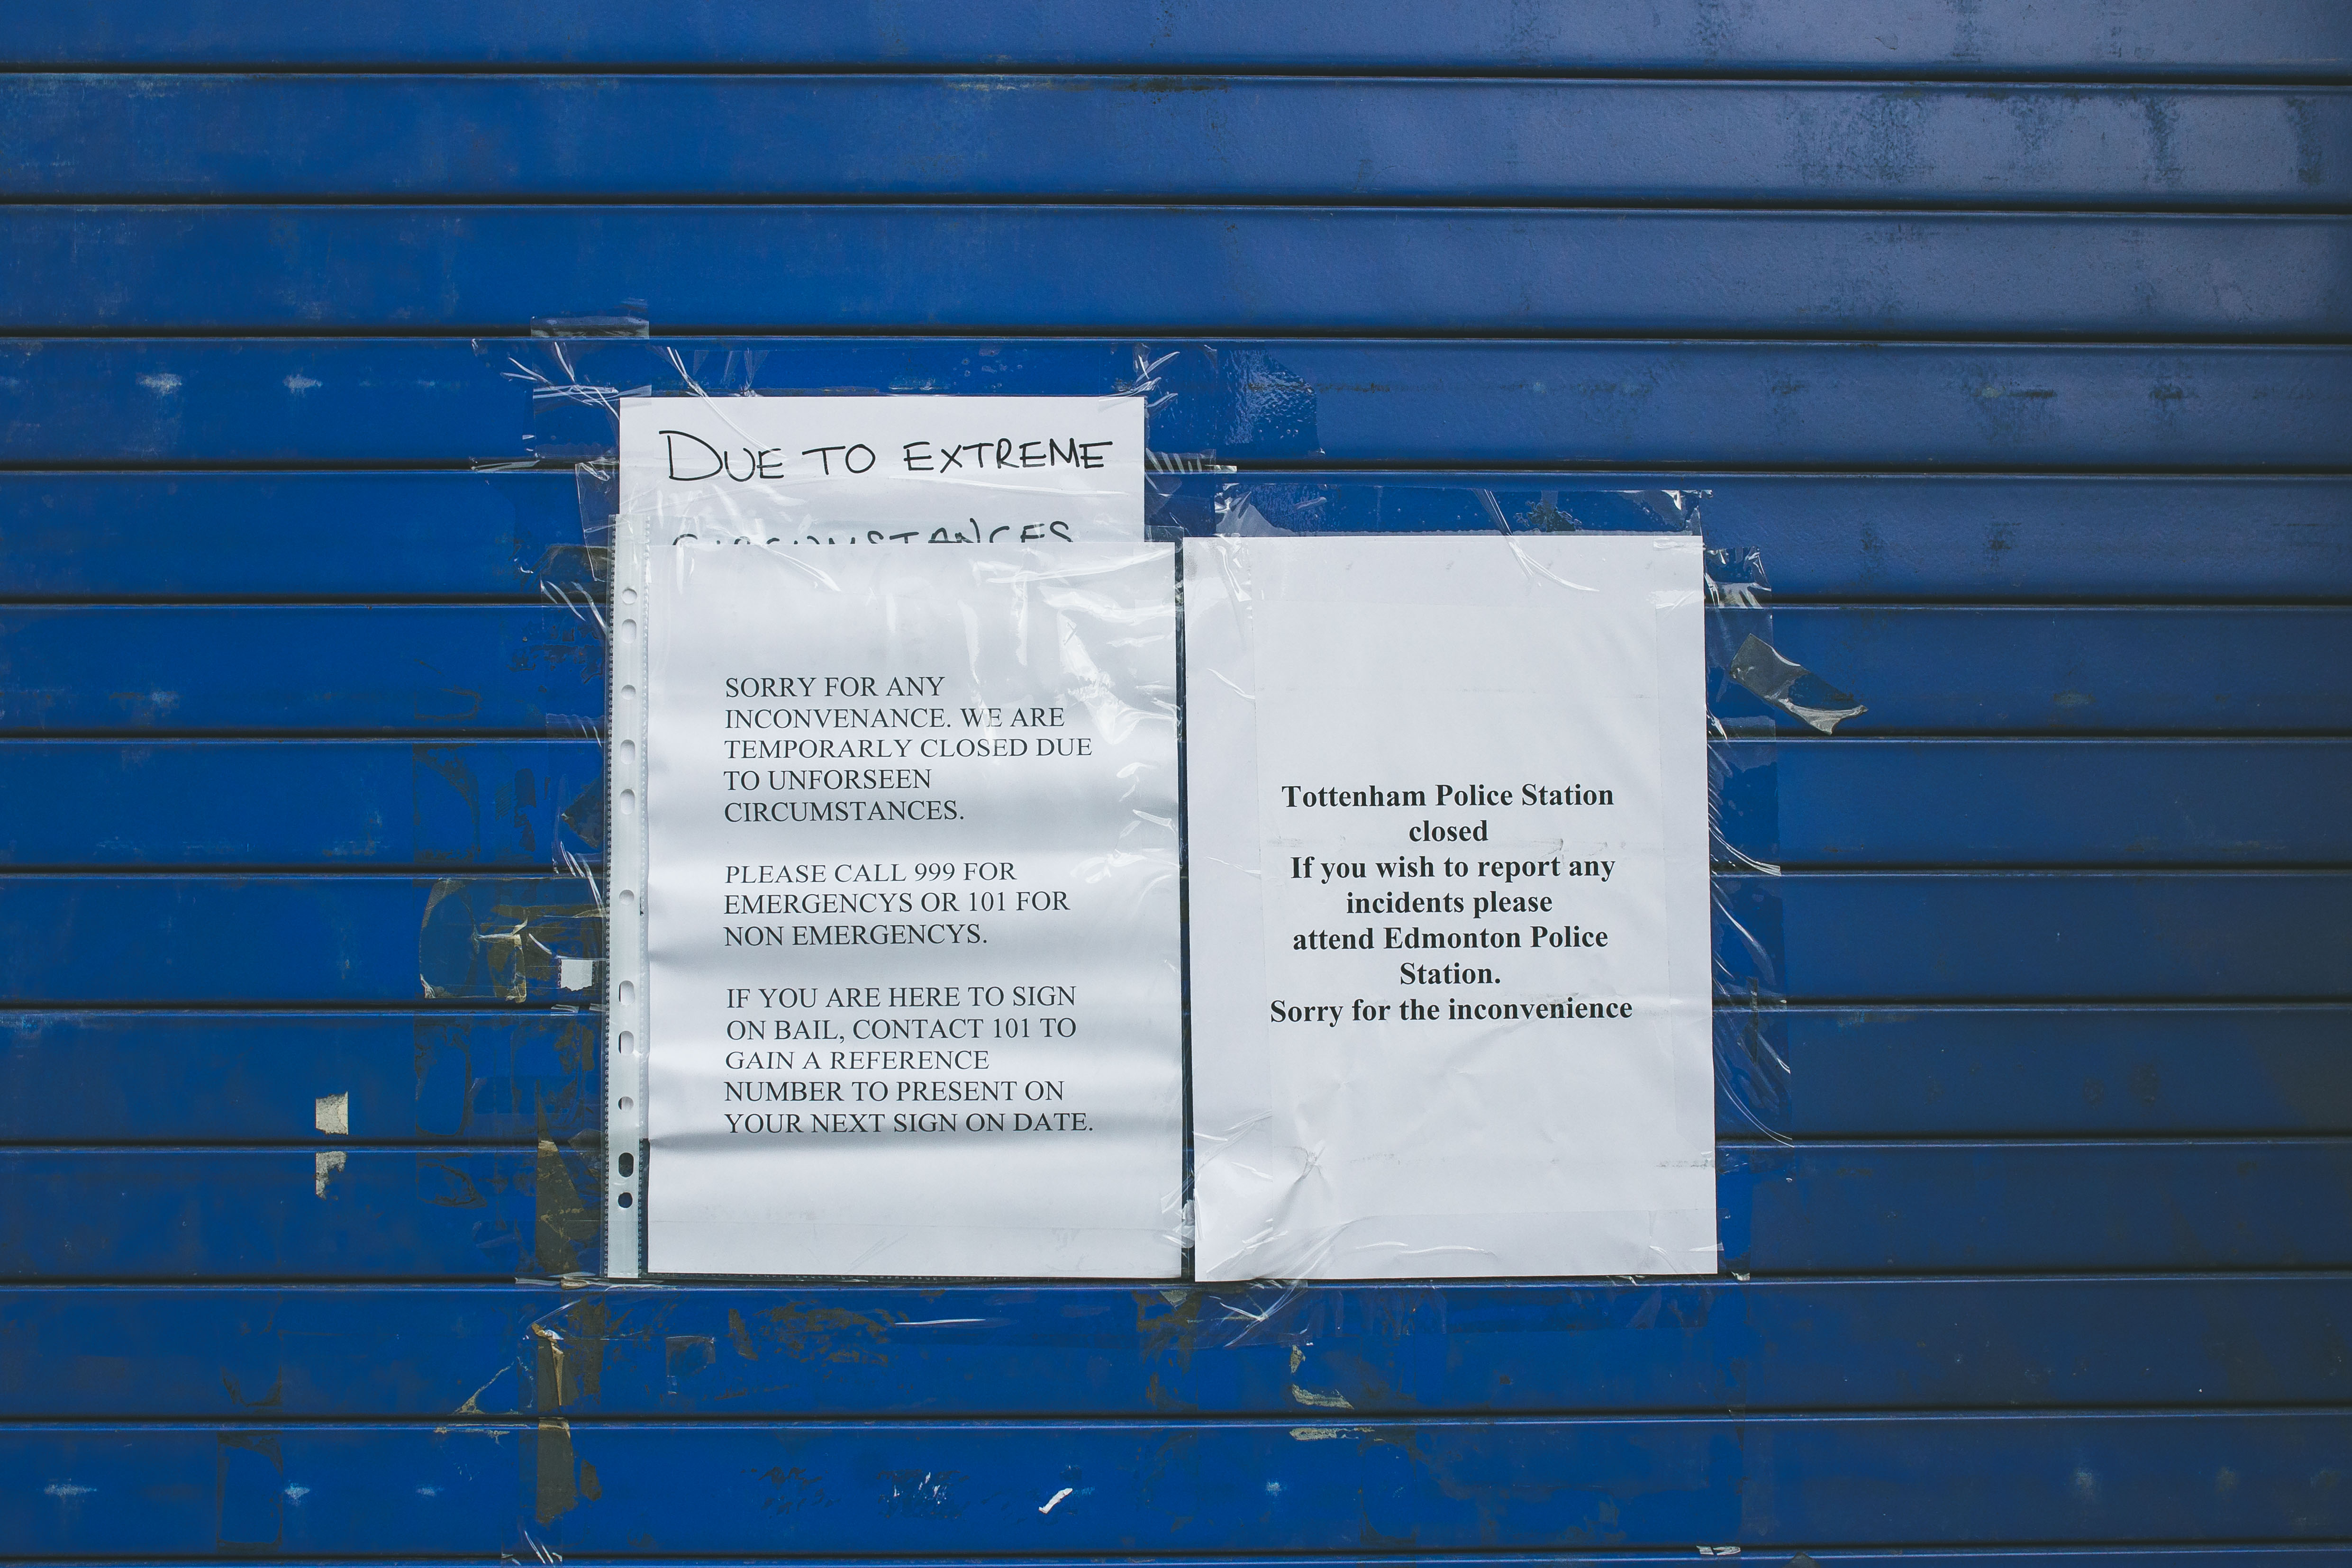 DUE TO EXTREME
CIRCUMSTANCES
SORRY FOR ANY
INCONVENANCE. WE ARE
TEMPORARLY CLOSED DUE
TO UNFORSEEN
CIRCUMSTANCES.
PLEASE CALL 999 FOR
EMERGENCYS OR 101 FOR
NON EMERGENCYS.
IF YOU ARE HERE TO SIGN
ON BAIL, CONTACT 101 TO
GAIN A REFERENCE
NUMBER TO PRESENT ON
YOUR NEXT SIGN ON DATE.
Tottenham Police Station
closed
If you wish to report any
incidents please
attend Edmonton Police
Station.
Sorry for the inconvenience